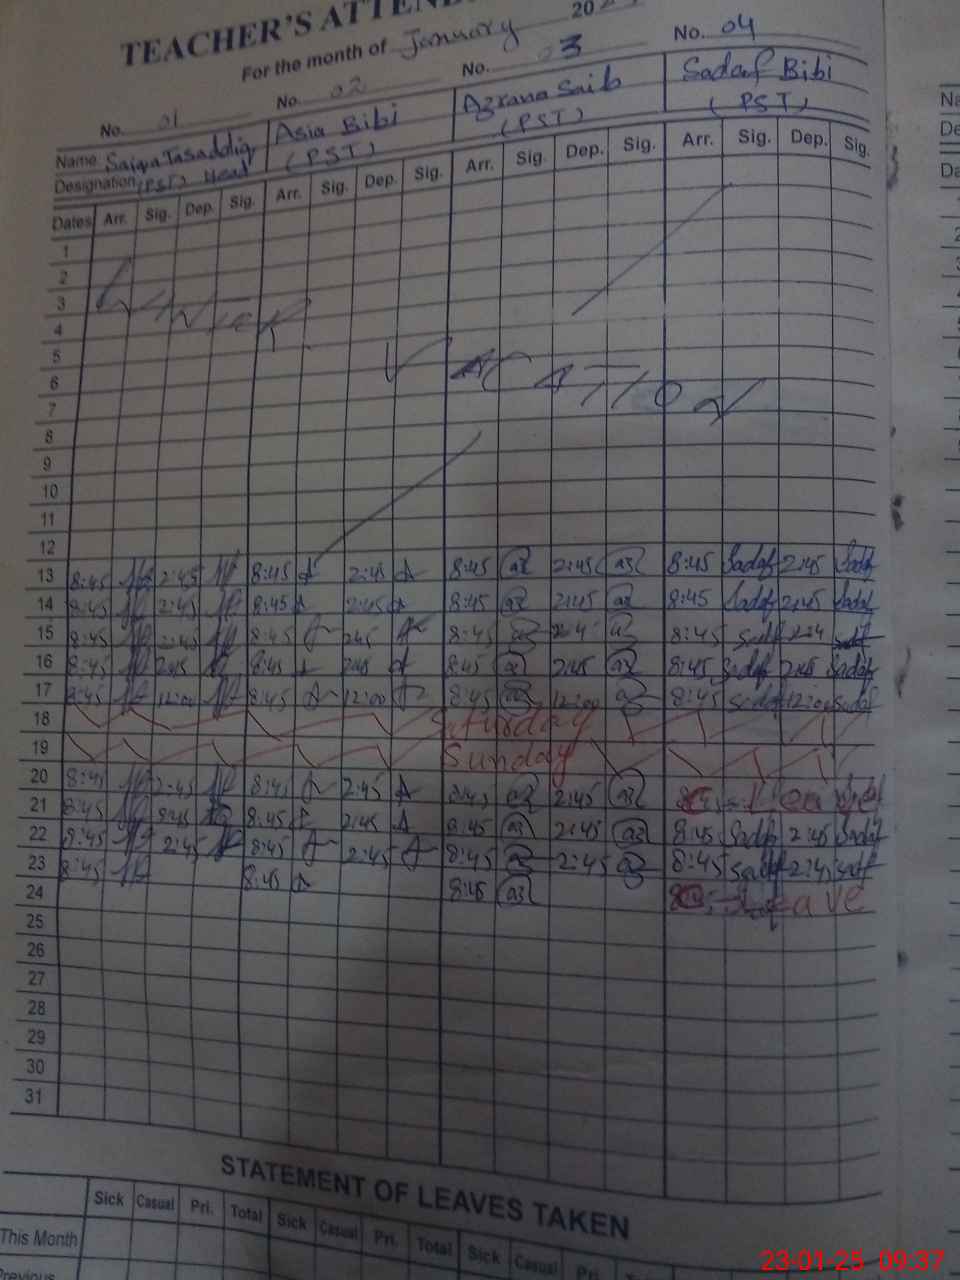 TEACHER'S ATTEND
For the month of January 20
No. 01 No. 02 No. 03 No. 04
Name Saiqa Tasaddiq Asia Bibi Azrana Saib Sadaf Bibi
Designation (PST) Head (PST) (PST) (PST)
Dates Arr. Sig. Dep. Sig. Arr. Sig. Dep. Sig. Arr. Sig. Dep. Sig. Arr. Sig. Dep. Sig.
1
2
3 WINTER
4
5
6 VACATION
7
8
9
10
11
12
13 8:45 2:45 8:45 2:45 8:45 2:45 8:45 Sadaf 2:45 Sadaf
14 8:45 2:45 8:45 2:45 8:45 2:45 8:45 Sadaf 2:45 Sadaf
15 8:45 2:45 8:45 2:45 8:45 2:4 8:45 Sadaf 2:4
16 8:45 2:45 8:45 2:45 8:45 2:45 8:45 Sadaf 2:45 Sadaf
17 8:45 12:00 8:45 12:00 8:45 12:00 8:45 Sadaf 12:00 Sadaf
18 Saturday
19 Sunday
20 8:45 2:45 8:45 2:45 8:45 2:45
21 8:45 8:45 2:45 8:45 2:45 8:45 Sadaf 2:45 Sadaf
22 8:45 2:45 8:45 2:45 8:45 2:45 8:45 Sadaf 2:45 Sadaf
23 8:45 8:45 8:45 Leave
24
25
26
27
28
29
30
31
STATEMENT OF LEAVES TAKEN
Sick Casual Pri. Total Sick Casual Pri. Total Sick Casual Pri.
This Month
Previous
23-01-25 09:37